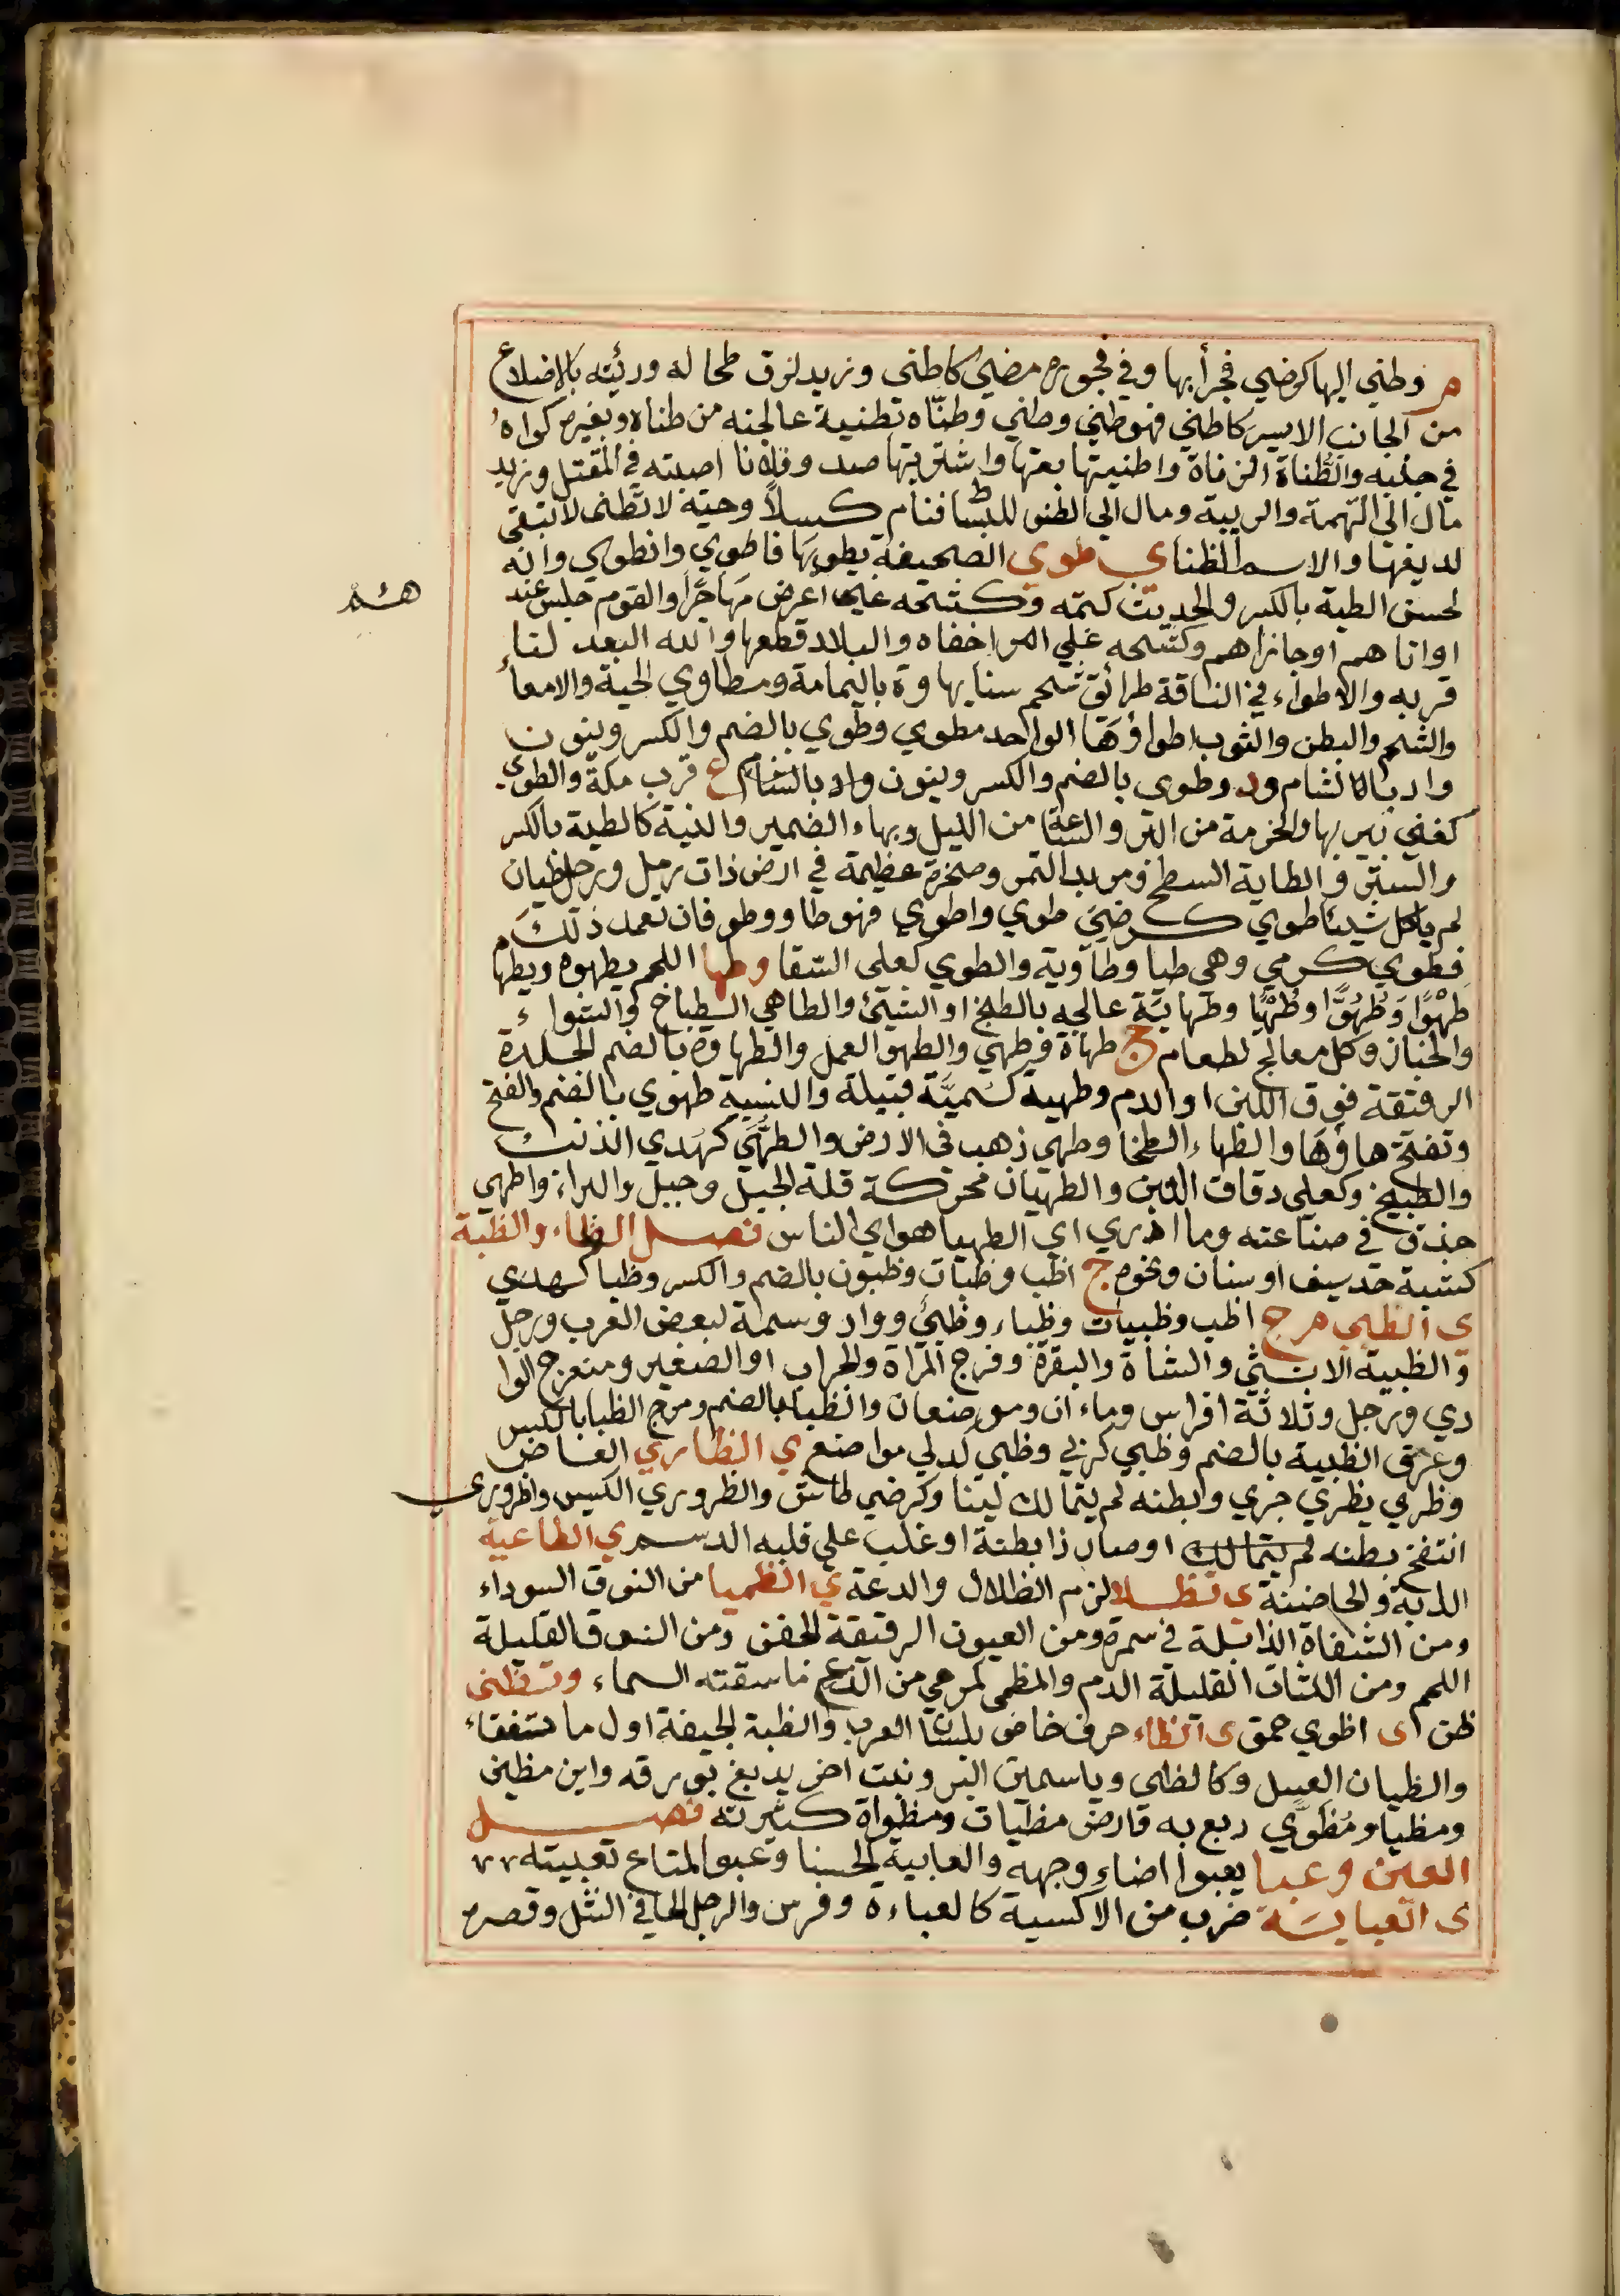 م وطني اليها كرضي فجرأ بها وفي فجوره مضى كاطنى وزيد لزق طحاله ورئيته بالاضلاع
من الجانب الايسر كاطني فهو طني وطني وطنّاه تطنية عالجنه من طناه وبغيره كواه
في جنبه والطُّناة الزناة واطنيتها بعتها واشتريتها ضد وفلانا اصبته في المقتل وزيد
مال الى التهمة والريبة ومال الي الطنو للبسا فنام كسلاً وحية لا تطنى لا تبقى
لديغها والاسم الطنا ي طوي الصحيفة يطويها فاطوي وانطوي وانه
لحسن الطية بالكسر والحديث كتمه وكشحه عني اعرض مهاجرا والقوم جلس عند
هم
او اتاهم او جازاهم وكشحه علي امر اخفاه والبلاد قطعها والله البعد لنا
قربه والاطواء في الناقة طرائق شحم سنامها وة باليمامة ومطاوي الحية والامعا
والشحم والبطن والثوب اطواؤها الواحد مطوي وطوي بالضم والكسر وينون
واد بالشام ود وطوى بالضم والكسر وينون واد بالشام ع قرب مكة والطوي
كغني بير بها والخزمة من البر والساعة من الليل وبهاء الضمير والنية كالطية بالكسر
والستين والطاية السطح ومربد التمر وصخرة عظيمة في ارض ذات رمل ورجل طيان
لم ياكل شيئا طوي كرضى طوي واطوي فهو طاو وطو فان تعمد ذلك
فطوي كرمي وهي طيا وطاوية والطوي كعلى السقا وطها اللحم يطهوه ويطها
طهوًا وطُهُوًّا وطُهْيًا وطهاية عالجه بالطبخ او الشيّ والطاهي الطباخ والشواء
والخباز وكل معالج لطعام ج طهاة وطهي والطهو العمل والطهاوة بالضم الجلدة
الرقيقة فوق اللبن او الدم وطهية كسمية قبيلة والنسبة طهوي بالضم والفتح
وتفتح هاؤها والطهاء الطخا وطهى ذهب في الارض والطهي كهدي الذنب
والطبيخ وكعلى دقاق التبن والطهيان محركة قلة الجبل وجبل والبرادة واطهي
حذق في صناعته وما ادري اي الطهيا هو اي الناس فصل الظاء والظبة
كثبة حد سيف او سنان ونحوه ج اظب وظبات وظبون بالضم والكسر وظبا كهدي
ي الظبي م ج اظب وظبيات وظباء وظبي وواد وسمة لبعض العرب ورجل
والظبية الانثى والشاة والبقرة وفرج المراة والجراب او الصغير ومنعرج الوا
دي ورجل وثلاثة افراس وماءان وموضعان والظباء بالضم ومرج الظبا بالكسر
وعرق الظبية بالضم وظبي كربي وظبي كدلي مواضع ي الظاري العاض
وظري يظري جري وابطنه لم يتمالك لينا وكرضي طاش والظروري الكيس واظروري
انتفخ بطنه لم يتمالك او صار ذا بطنة او غلب على قلبه الدسم ي الظاعية
الداية والحاضنة ي تظلا لزم الظلال والدعة ي الظميا من النوق السوداء
ومن الشفاة الذابلة في سمرة ومن العيون الرقيقة الجفن ومن السوق القليلة
اللحم ومن اللثات القليلة الدم والمظمى كمرمي من الزرع ما سقته السماء وتظنى
ظن اى اظوي حمق ى الظاء حرف خاص بلسان العرب والظية الجيفة اول ما تتفقاء
والظيان العسل وكالظى وياسمين البر ونبت اخر يدبغ بورقه واين مظين
ومظيا ومظوّي دبغ به وارض مظيات ومظواة كثيرته فصل
العين وعبا يعبوا اضاء وجهه والعابية الحسنا وعبو المتاع تعبيته
ى العباية ضرب من الاكسية كالعباءة وفرس والرجل الجافي الثقل وقصره